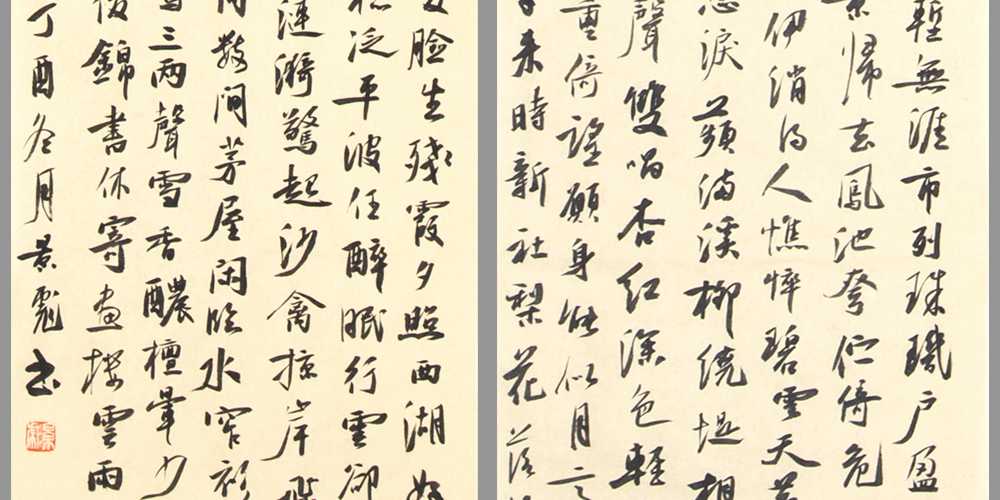 輕無涯市列珠璣户盈
景歸去鳳池夸佇倚危
伊消得人憔悴碧雲天
思淚蘋滿溪柳繞堤相
聲雙唱杏紅深色輕
重倚望願身能似月亭
來時新社梨花落
臉生殘霞夕照西湖好
穩泛平波任醉眠行雲卻
漣漪驚起沙禽掠岸飛
數間茅屋閑臨水窄衫
三兩聲雪香醲檀暈少
後錦書休寄畫樓雲雨
丁酉冬月景彪書